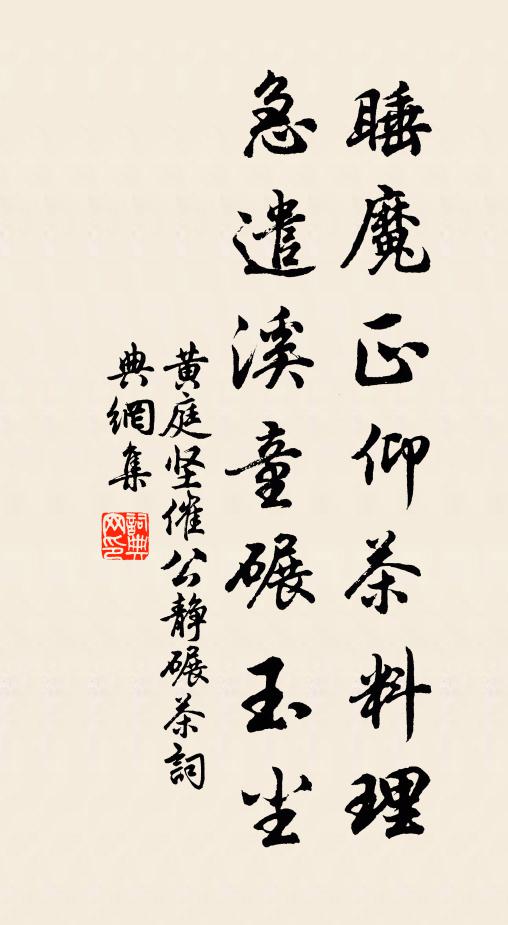 睡魔正仰茶料理
急遣溪童碾玉尘
黄庭坚催公静碾茶詞
典網集
詞典网印